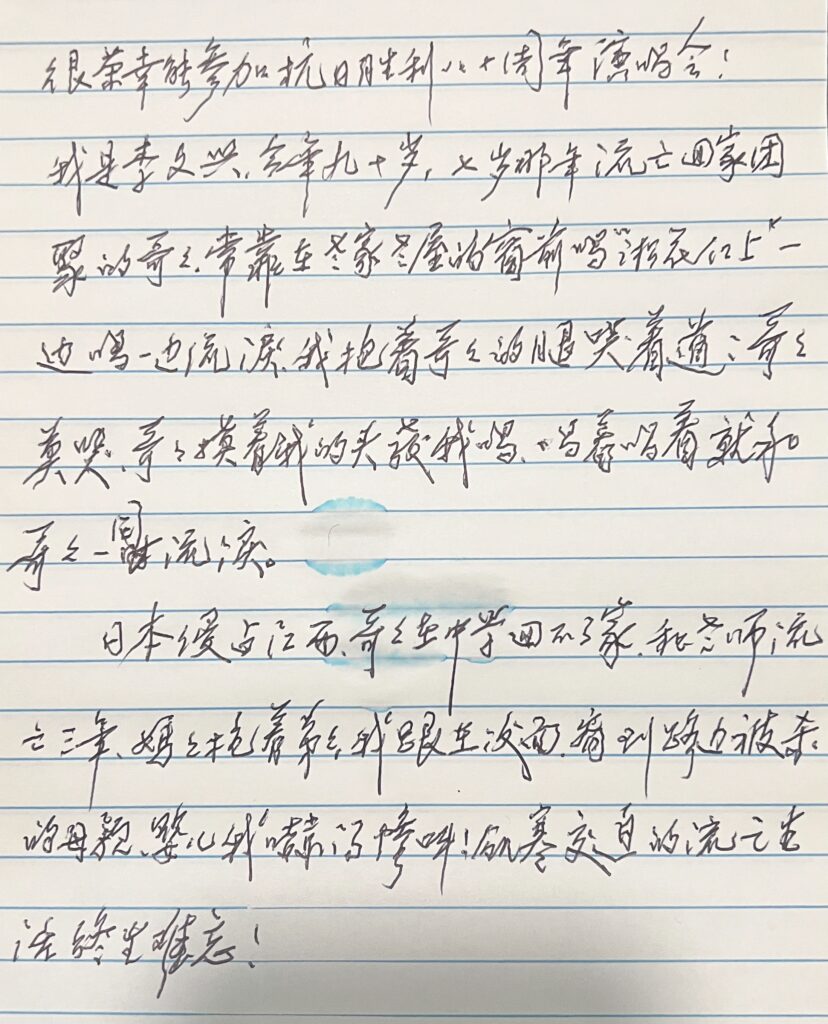 很荣幸能参加抗日胜利八十周年演唱会！
我是李文兴、今年九十岁，七岁那年流亡回家团
聚的哥々、常靠在老家老屋的窗前唱“松花江上”一
边唱一边流淚、我抱着哥々的腿哭着道：哥々
莫哭、哥々摸着我的头发我唱、唱着唱着就和
哥々一同流淚。
日本侵占江西、哥々在中学回不了家、和老师流
亡三年、媽々抱着弟々、我跟在后面、看到路边被杀
的母亲、婴儿我嚇得惨叫！饥寒交迫的流亡生
活终生难忘！